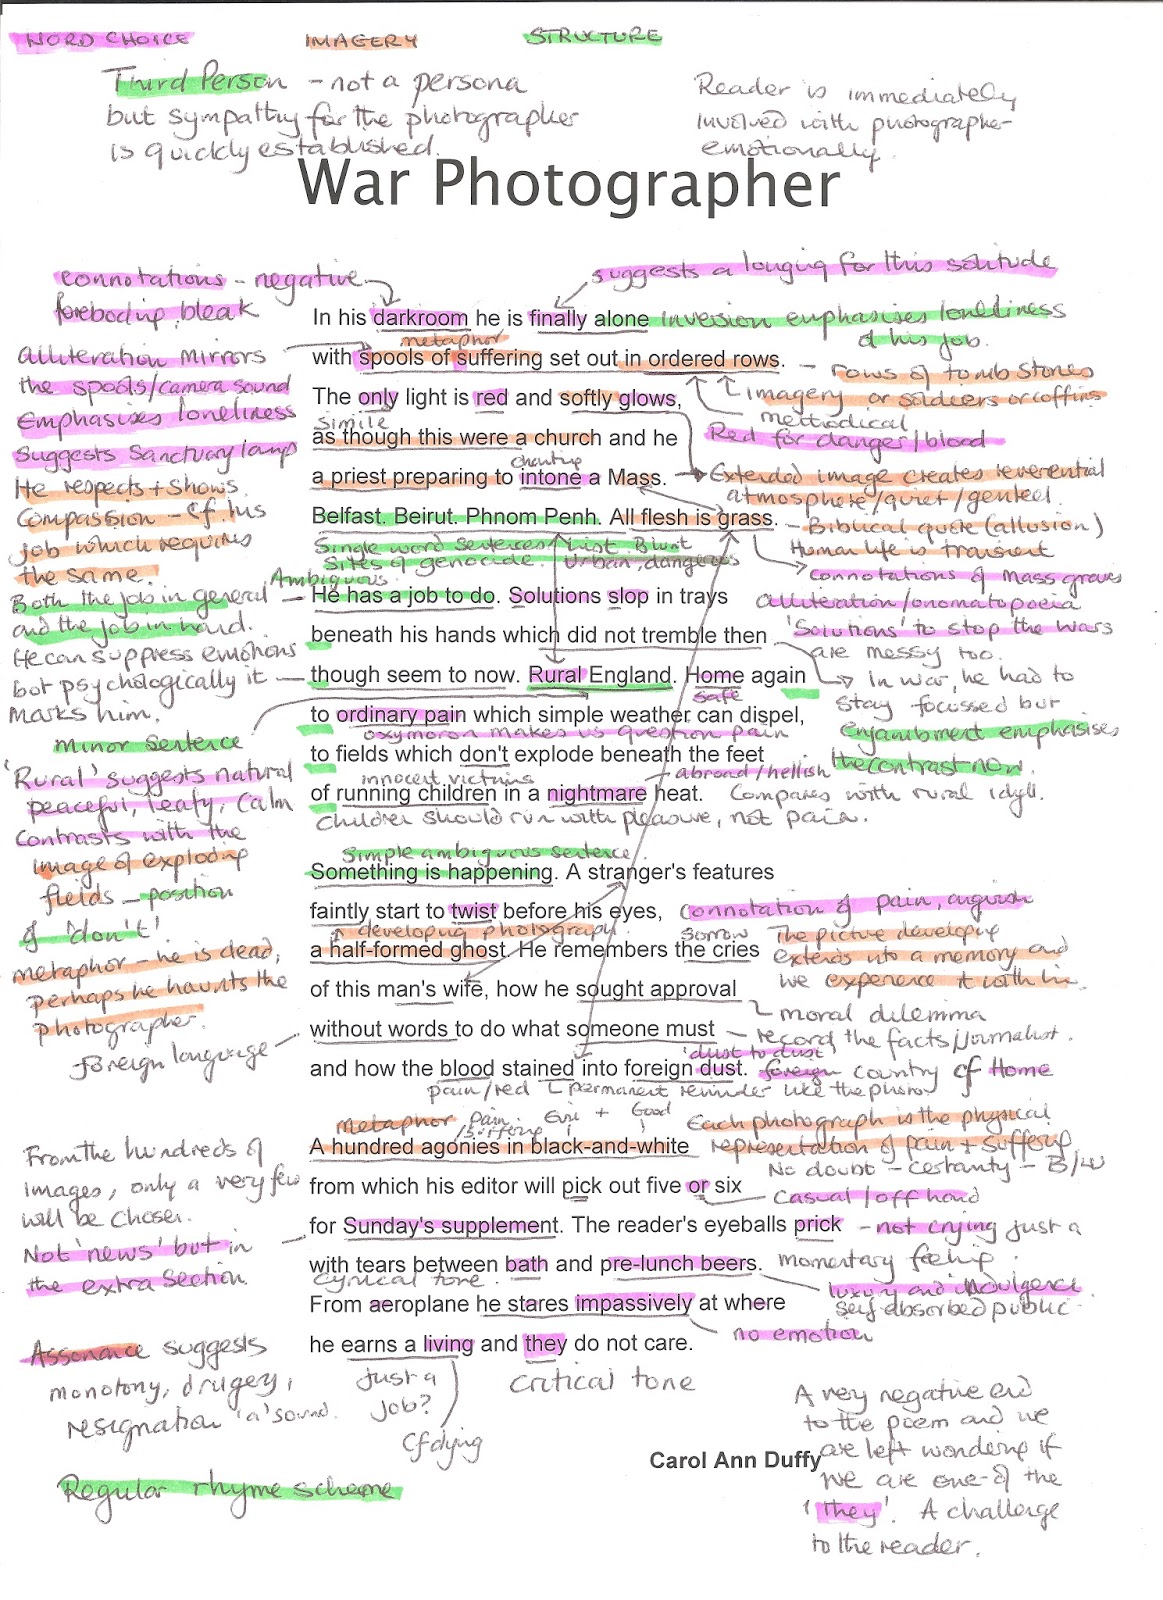 WORD CHOICE IMAGERY STRUCTURE
Third Person - not a persona
but sympathy for the photographer
is quickly established.
Reader is immediately
involved with photographer
emotionally.
War Photographer
connotations - negative
foreboding, bleak
suggests a longing for this solitude
In his darkroom he is finally alone
inversion emphasises loneliness
of his job.
metaphor
alliteration mirrors
the spools/camera sound
Emphasises loneliness
with spools of suffering set out in ordered rows.
- rows of tomb stones
imagery or soldiers or coffins
methodical
The only light is red and softly glows,
Red for danger/blood
Suggests Sanctuary lamp
Simile
as though this were a church and he
chanting
a priest preparing to intone a Mass.
Extended image creates reverential
atmosphere/quiet/genteel.
He respects + shows
compassion - cf. his
job which requires
the same.
Belfast. Beirut. Phnom Penh. All flesh is grass.
- Biblical quote (allusion)
Human life is transient
connotations of mass graves
Single word sentences/List. Blunt
Sites of genocide. Urban, dangerous
Ambiguous
Both the job in general
and the job in hand.
He has a job to do. Solutions slop in trays
alliteration/onomatopoeia
'Solutions' to stop the wars
are messy too.
beneath his hands which did not tremble then
He can suppress emotions
but psychologically it
marks him.
though seem to now. Rural England. Home again
safe
In war, he had to
stay focussed but
enjambment emphasises
the contrast now.
to ordinary pain which simple weather can dispel,
oxymoron makes us question pain
Minor sentence
'Rural' suggests natural
peaceful, leafy, calm
contrasts with the
image of exploding
fields - position
of 'don't'
to fields which don't explode beneath the feet
innocent victims
abroad/hellish
of running children in a nightmare heat.
Compares with rural idyll.
children should run with pleasure, not pain.
Simple ambiguous sentence.
Something is happening. A stranger's features
faintly start to twist before his eyes,
connotation of pain, anguish
developing photograph.
sorrow
The picture developing
extends into a memory and
we experience it with him.
a half-formed ghost. He remembers the cries
metaphor - he is dead,
perhaps he haunts the
photographer.
of this man's wife, how he sought approval
moral dilemma
without words to do what someone must
foreign language
- record the facts/journalist.
'dust to dust'
and how the blood stained into foreign dust.
foreign country cf Home
pain/red permanent reminder like the photos
Metaphor Pain/suffering Evil + Good
Each photograph is the physical
representation of pain + suffering
No doubt - certainty - B/W
A hundred agonies in black-and-white
From the hundreds of
images, only a very few
will be chosen.
from which his editor will pick out five or six
casual/off hand
Not 'news' but in
the extra section.
for Sunday's supplement. The reader's eyeballs prick
- not crying just a
momentary feeling.
with tears between bath and pre-lunch beers.
cynical tone.
luxury and indulgence
self-absorbed public.
From aeroplane he stares impassively at where
no emotion
he earns a living and they do not care.
Assonance suggests
monotony, drugery,
resignation 'a' sound.
Just a
job?
cf dying
critical tone
A very negative end
to the poem and we
are left wondering if
we are one of the
'they'. A challenge
to the reader.
Carol Ann Duffy
Regular rhyme scheme